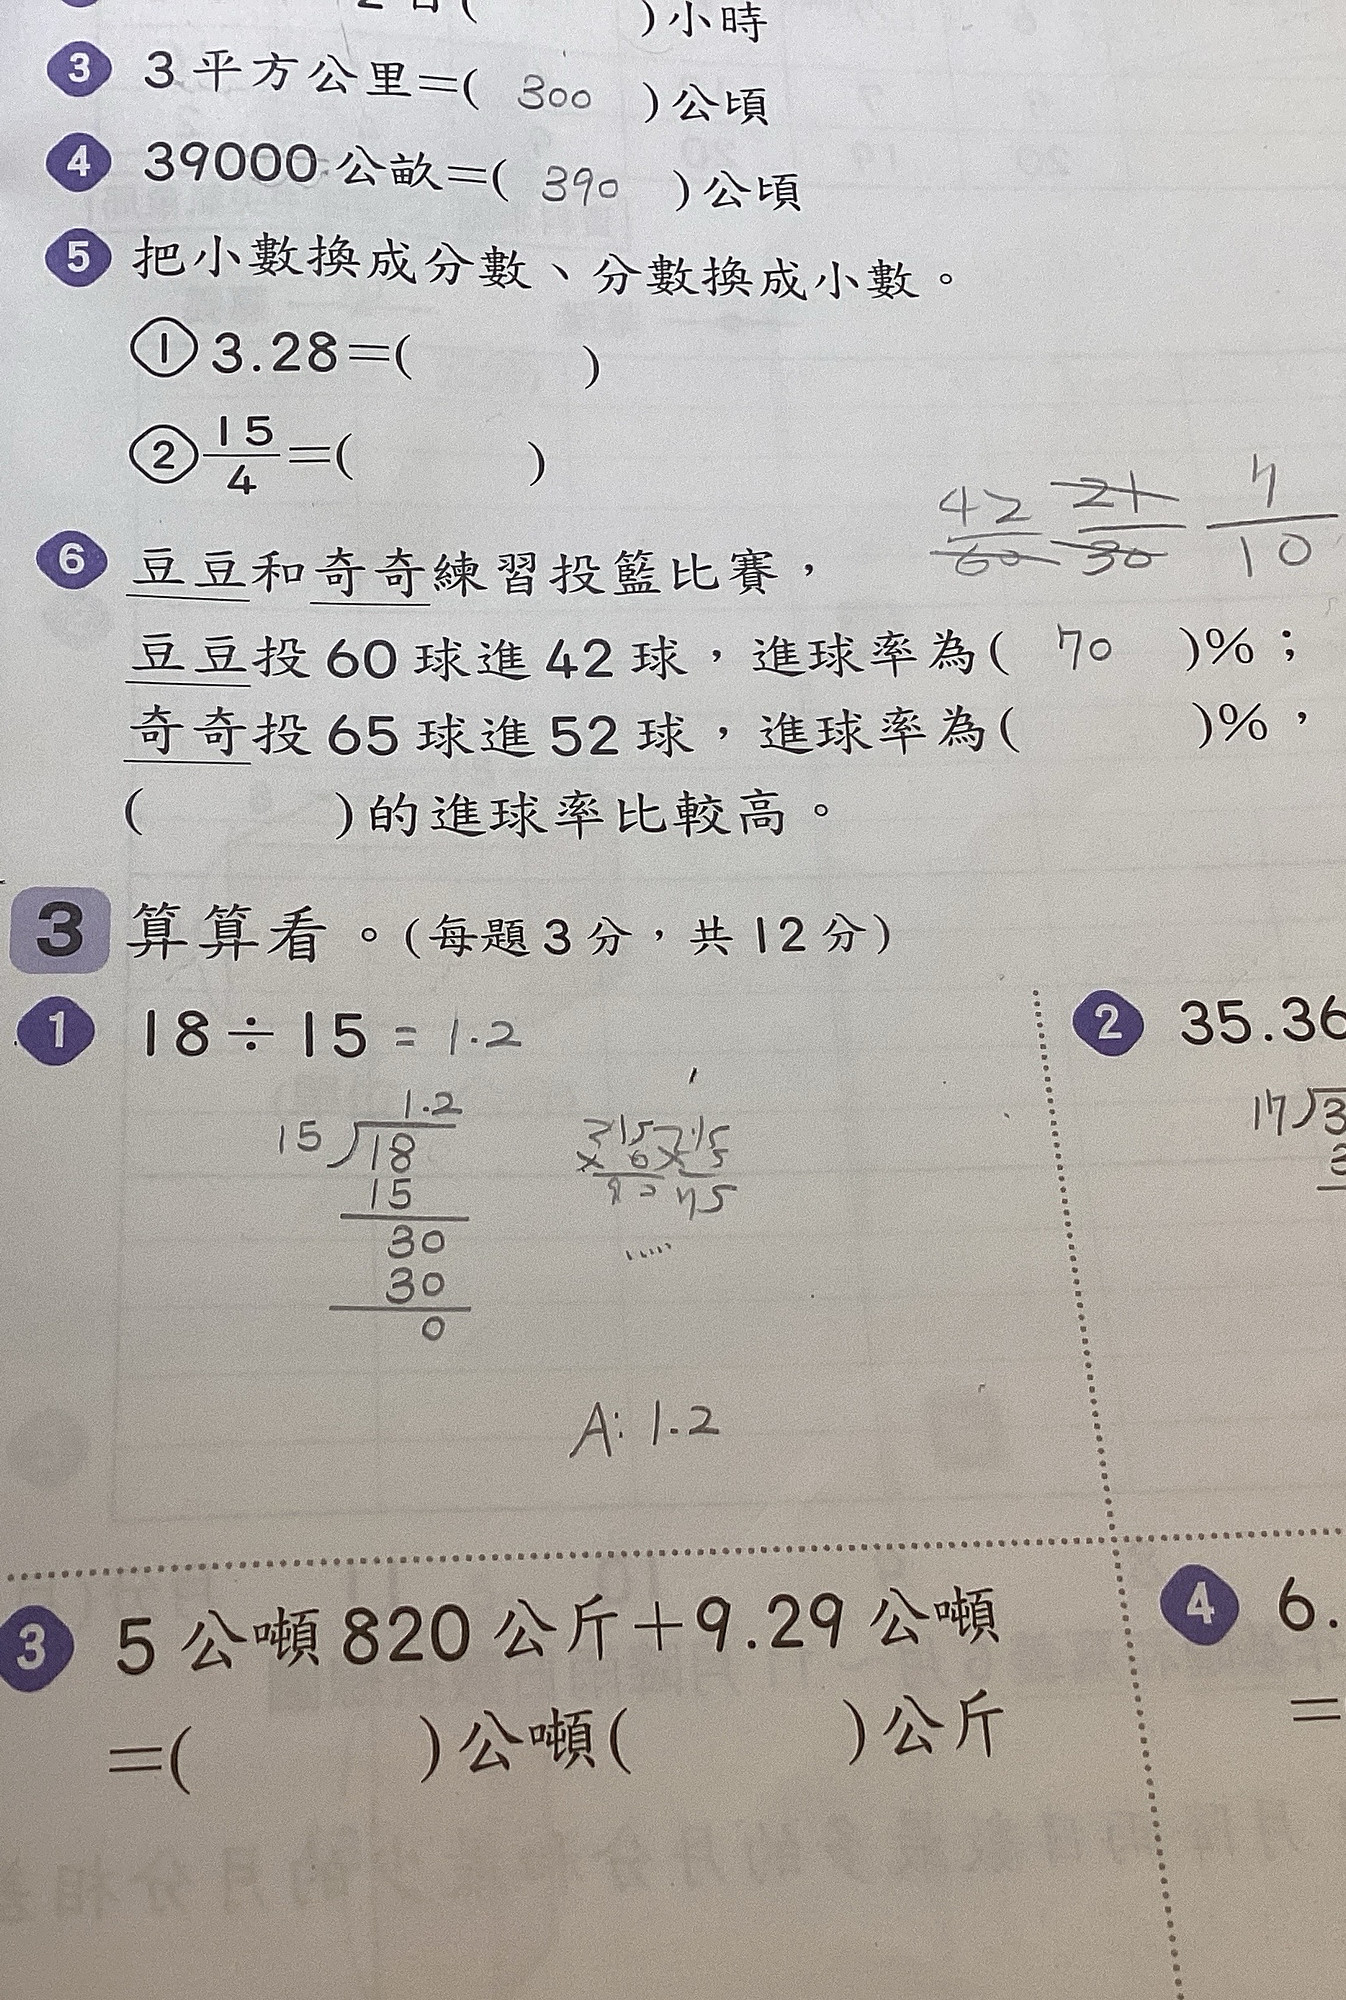 )小時
3 3平方公里=( 300 )公頃
4 39000公畝=( 390 )公頃
5 把小數換成分數、分數換成小數。
① 3.28=( )
② 15/4=( )
42/60 21/30 7/10
6 豆豆和奇奇練習投籃比賽，
豆豆投60球進42球，進球率為( 70 )%；
奇奇投65球進52球，進球率為( )%，
( )的進球率比較高。
3 算算看。(每題3分，共12分)
1 18÷15 = 1.2
1.2
15)18
15
30
30
0
A: 1.2
2 35.36
17)3
3 5公噸820公斤+9.29公噸
=( )公噸( )公斤
4 6.
=